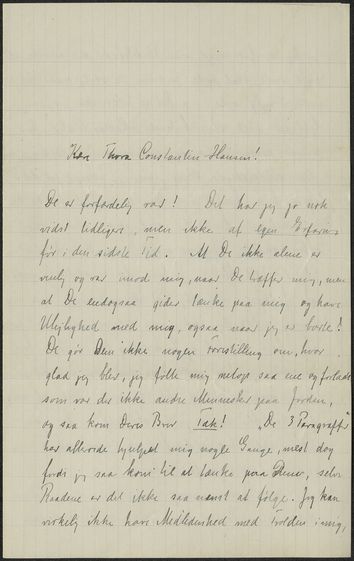 Kære Thora Constantin Hansen!
De er forfærdelig rar! Det har jeg jo nok
vidst tidligere, men ikke af egen Erfaring
før i den sidste Tid. At De ikke alene er
venlig og rar imod mig, naar De træffer mig, men
at De endogsaa gider tænke paa mig og have
Ulejlighed med mig, ogsaa naar jeg er borte!
De gør Dem ikke nogen Forestilling om, hvor
glad jeg blev, jeg følte mig netop saa ene og forladt
som var der ikke andre Mennesker paa Jorden,
og saa kom Deres Brev. Tak! "De 3 Paragraffer"
har allerede hjulpet mig nogle Gange, mest dog
fordi jeg saa kom til at tænke paa Dem, selve
Raadene er det ikke saa nemt at følge. Jeg kan
virkelig ikke have Medlidenhed med Trolden i mig,